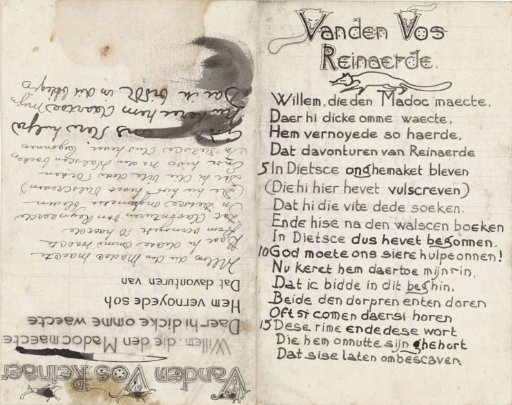 Vanden Vos Reinaer
Willem, die den Madoc maecte
Daer hi dicke omme waecte
Hem vernoyede soh
Dat davonturen van
Willem die den Madoc maecte
Daer hi dicke omme waecte
Hem vernoyede so haerde
Dat davonturen van
In dietsche
Dat hi die vite dede soeken
Ende hise na den
In dietsche dus
God ons
keret hem daertoe mijn
Dat ic bidde in dit
Vanden Vos
Reinaerde.
Willem, die den Madoc maecte,
Daer hi dicke omme waecte,
Hem vernoyede so haerde,
Dat davonturen van Reinaerde
5 In Dietsce onghemaket bleven
(Die hi hier hevet vulscreven)
Dat hi die vite dede soeken
Ende hise na den walscen boeken
In Dietsce dus hevet begonnen.
10 God moete ons siere hulpeonnen!
Nu keret hem daertoe mijn sin,
Dat ic bidde in dit beghin,
Beide den dorpren enten doren
Oft si comen daersi horen
15 Dese rime ende dese wort
Die hem onnutte sijn ghehort
Dat sise laten ombescaven.